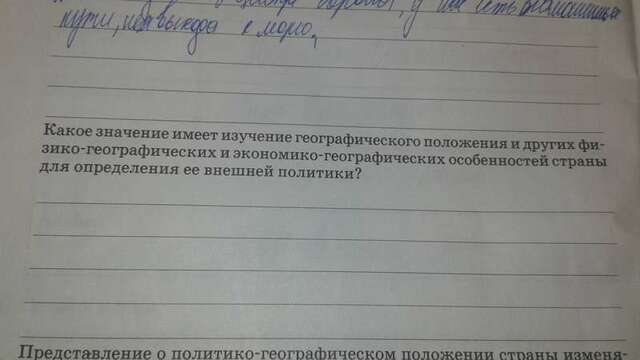 у них есть
пути, нет выхода к морю,
Какое значение имеет изучение географического положения и других фи-
зико-географических и экономико-географических особенностей страны
для определения ее внешней политики?
Представление о политико-географическом положении страны изменя-